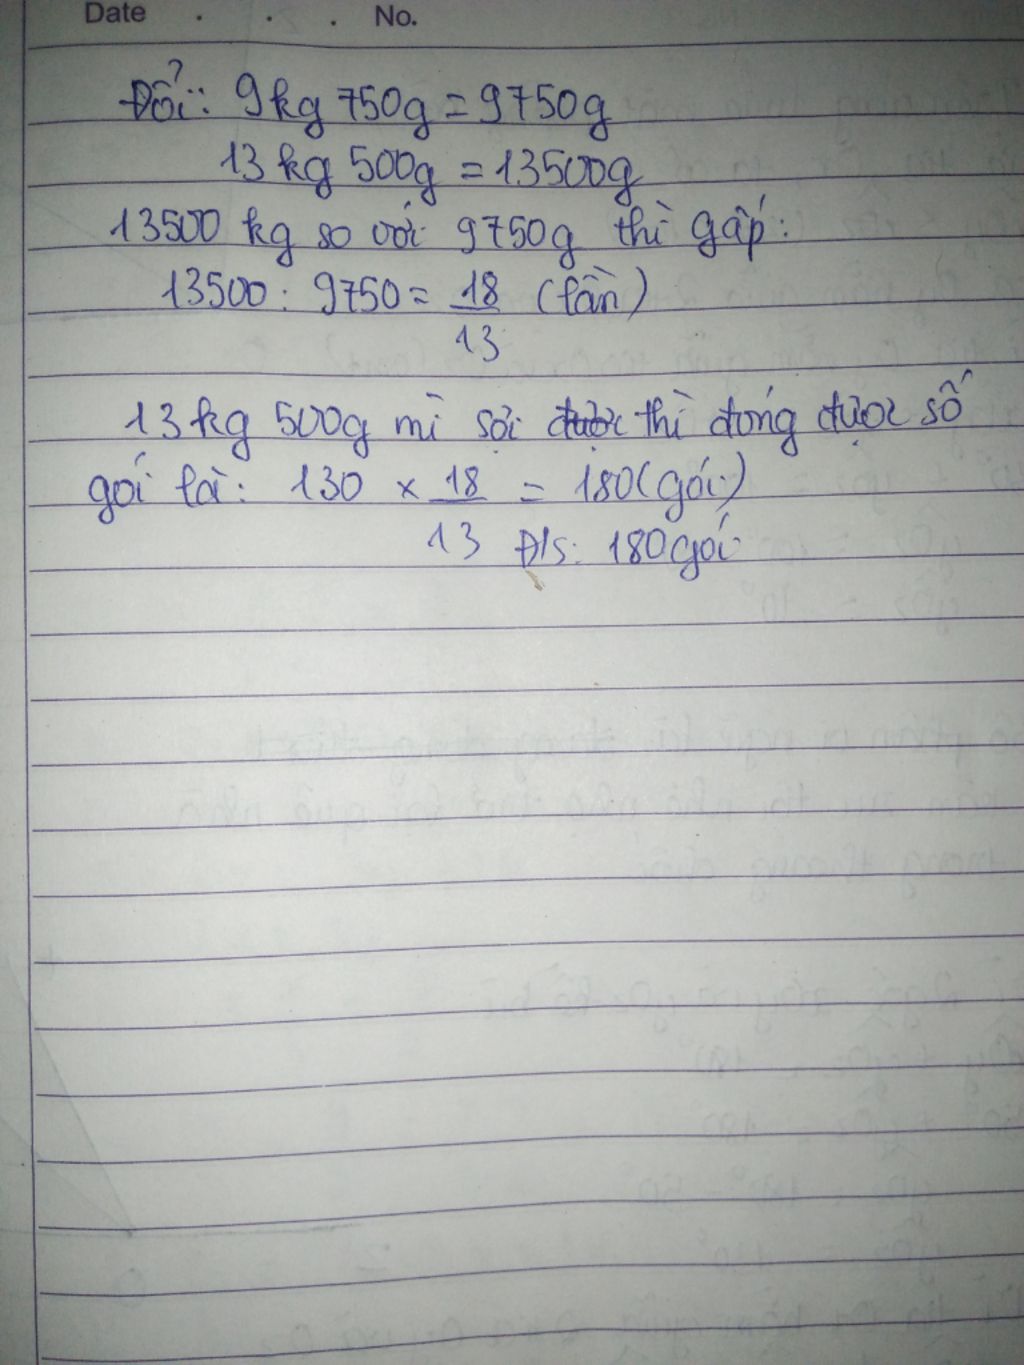 Date . . . No.
Đổi: 9kg 750g = 9750g
13kg 500g = 13500g
13500 kg so với 9750g thì gấp:
13500 : 9750 = 18 (lần)
13
13kg 500g mì sợi được thì đóng được số
gói là: 130 × 18 = 180 (gói)
13 Đ/s: 180 gói